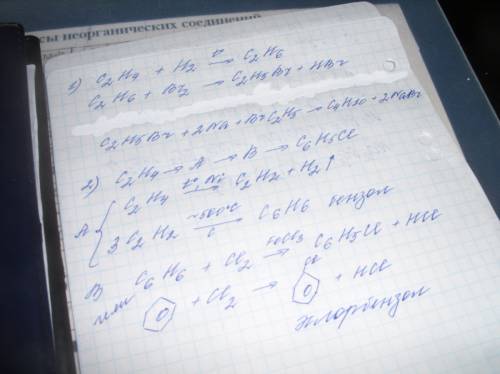 сы неорганических соединений
1) C2H4 + H2 →t° C2H6
C2H6 + Br2 → C2H5Br + HBr
C2H5Br + 2Na + BrC2H5 → C4H10 + 2NaBr
2) C2H4 → A → B → C6H5Cl
A { C2H4 →t° Ni C2H2 + H2↑
3C2H2 →~500°C C C6H6 бензол
B C6H6 + Cl2 →FeCl3 C6H5Cl + HCl
или + Cl2 → Cl + HCl
хлорбензол